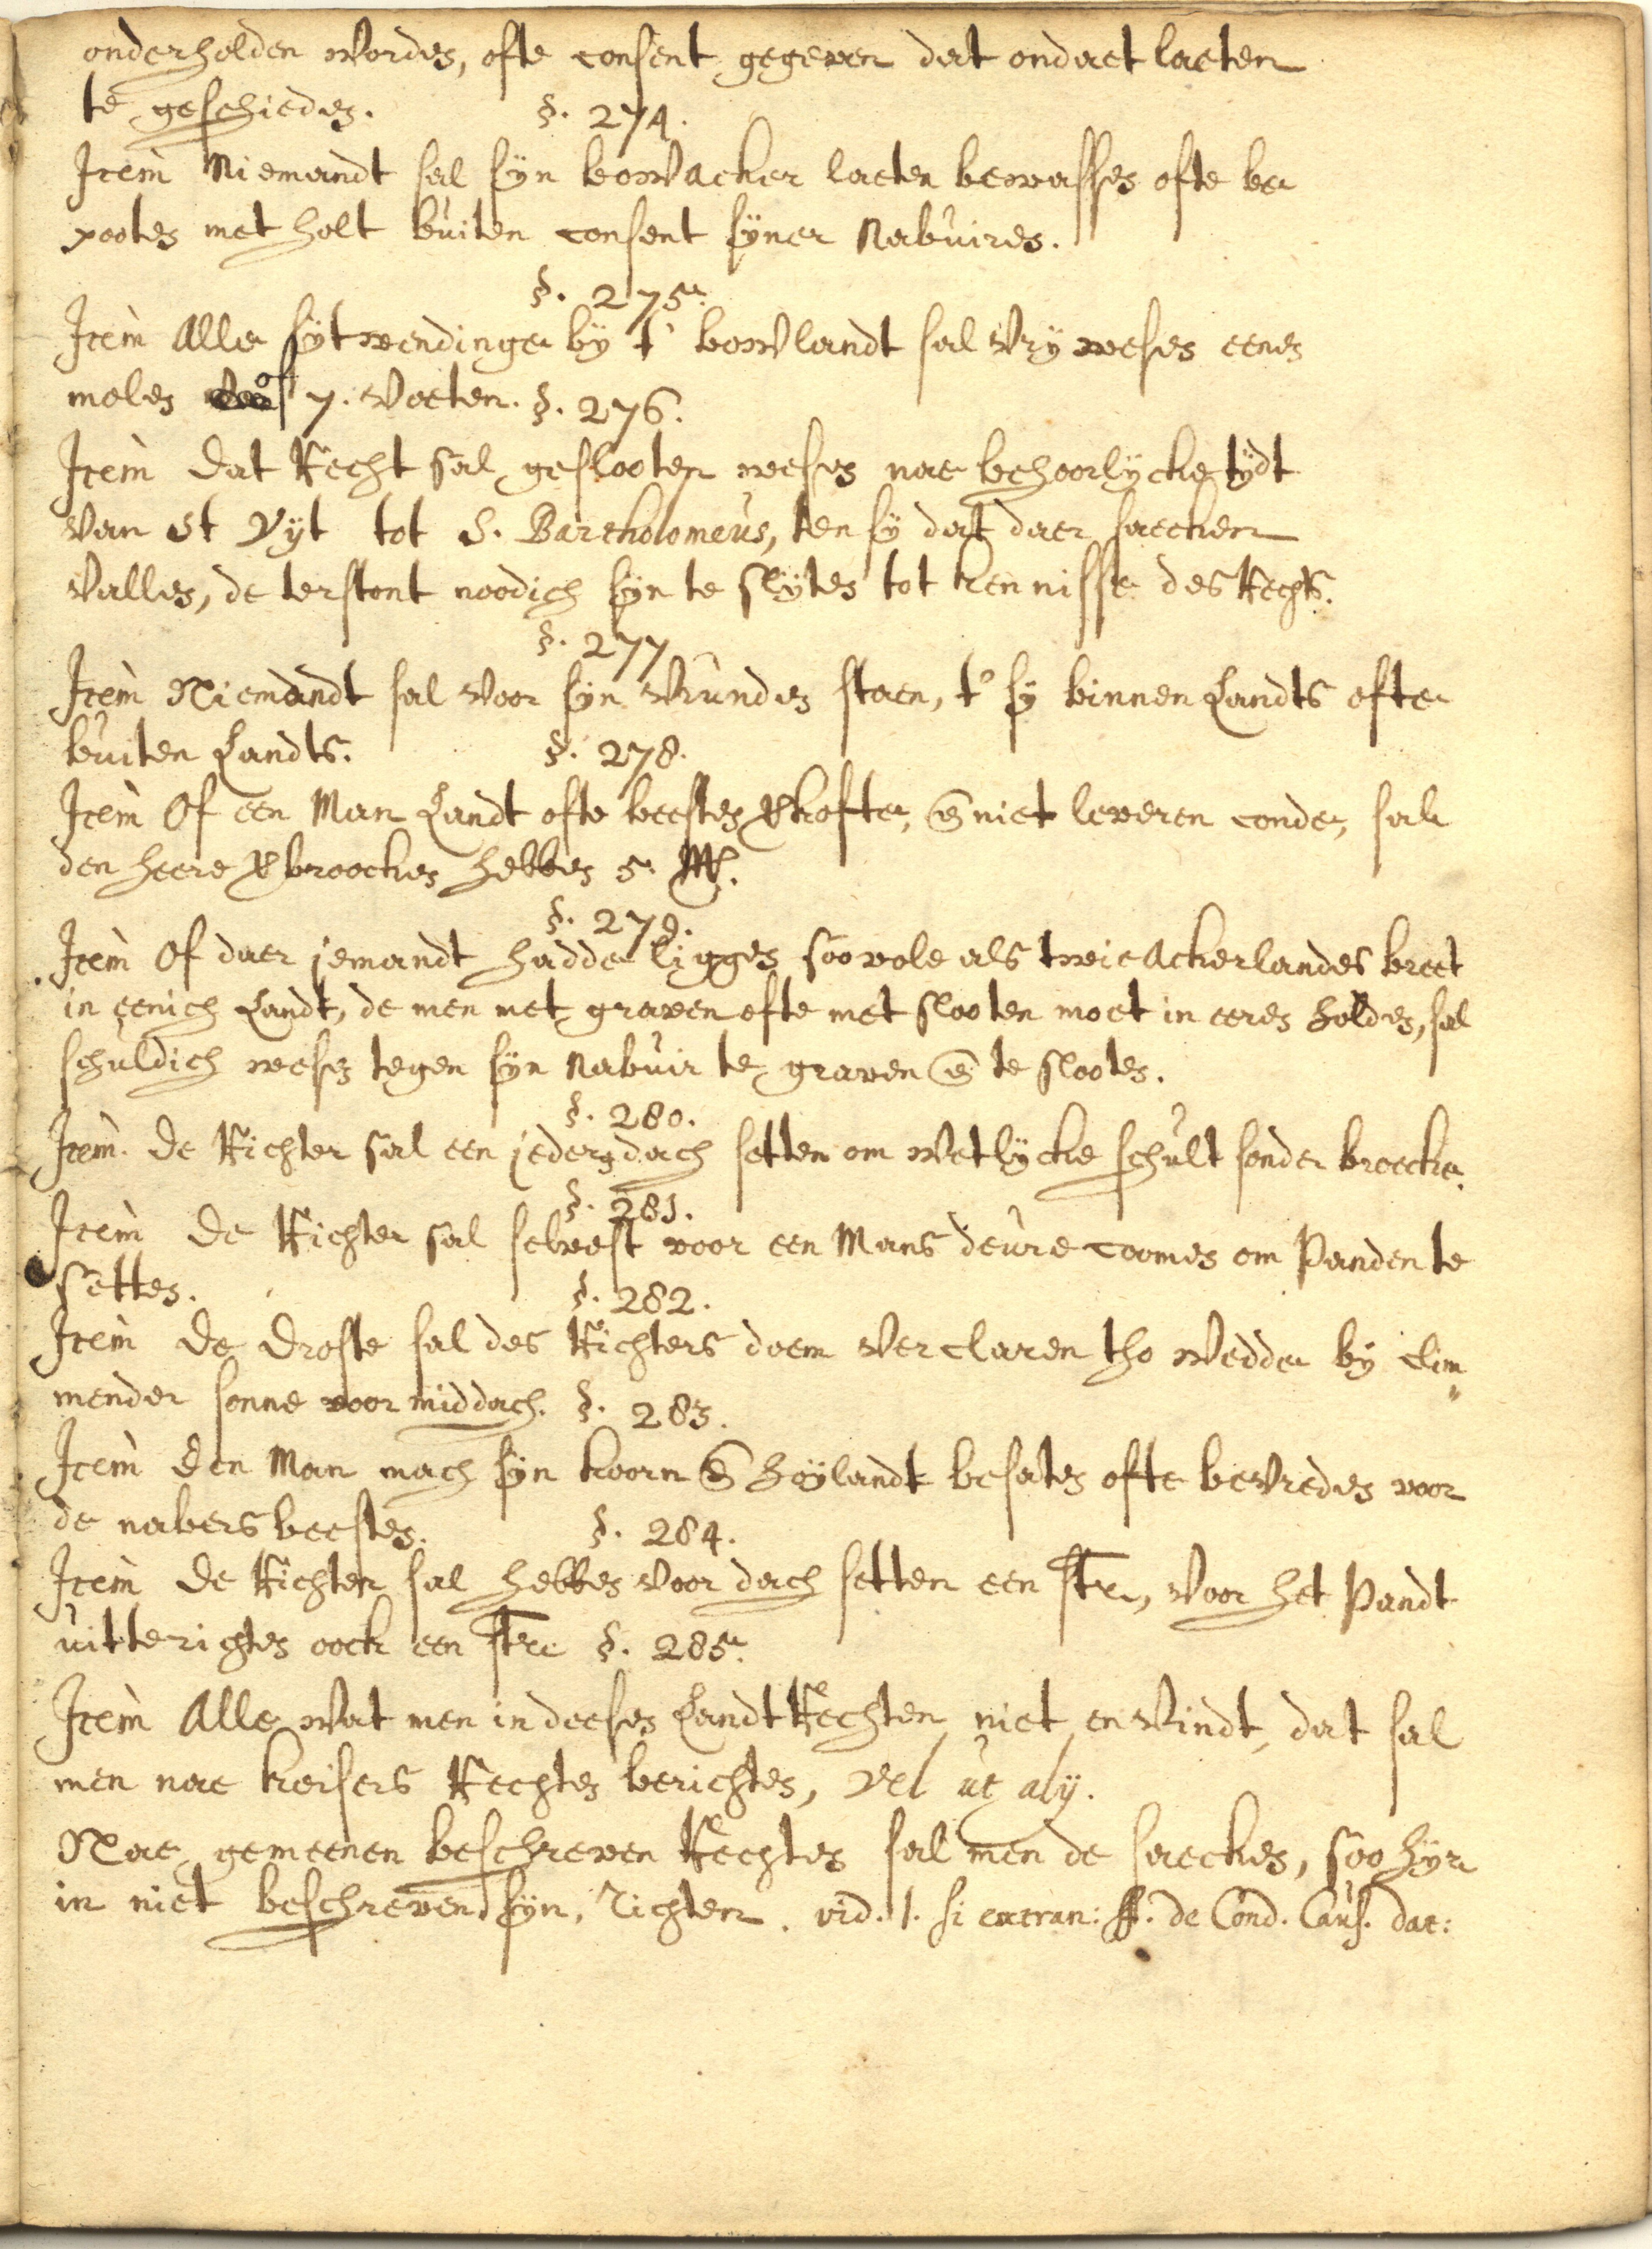 onderholden worden, ofte consent gegeven dat ondaet laeten
te geschieden. §. 274.
Item Niemandt sal syn bowacker laeten bewassen ofte be
pooten met holt buiten consent syner Nabuiren.
§. 275.
Item Alle sytwendinge by t' bowlandt sal vry wesen eenes
moles of 7. voeten. §. 276.
Item Dat Recht sal geslooten wesen nae behoorlycke tydt
van St Vyt tot S. Bartholomeus, ten sy dat daer saecken
vallen, de terstont noodich syn te slyten tot kennisse des Rechts.
§. 277
Item Niemandt sal voor syn vrunden staen, t' sy binnen Landts ofte
buiten Landts. §. 278.
Item Of een Man Landt ofte beesten vkofte, en niet leveren conde, sal
den heere vbroocken hebben 5. M.
§. 279.
Item Of daer jemandt hadde liggen soo vole als twie Ackerlandes breet
in eenich Landt, de men met graven ofte met slooten moet in eeren holden, sal
schuldich wesen tegen syn Nabuir te graven en te slooten.
§. 280.
Item. De Richter sal een jeder dach setten om wetlycke schult sonder broecke.
§. 281.
Item De Richter sal selvest voor een Mans deure coomen om Panden te
setten. §. 282.
Item De Droste sal des Richters doem verclaren tho Wedde by clim
mender sonne voor middach. §. 283.
Item Den Man mach syn koorn en hoylandt besaten ofte bevreden voor
de nabers beesten. §. 284.
Item De Richter sal hebben voor dach setten een str, voor het Pandt
uitterichten oock een str §. 285.
Item Alle wat men in deesen Landt Rechten niet en vindt, dat sal
men nae keisers Rechten berichten, vel ut alij.
Nae gemeenen beschreven Rechten sal men de saecken, soo hyr
in niet beschreven syn, richten. vid. l. si extran: ff. de Cond. Caus. dat: